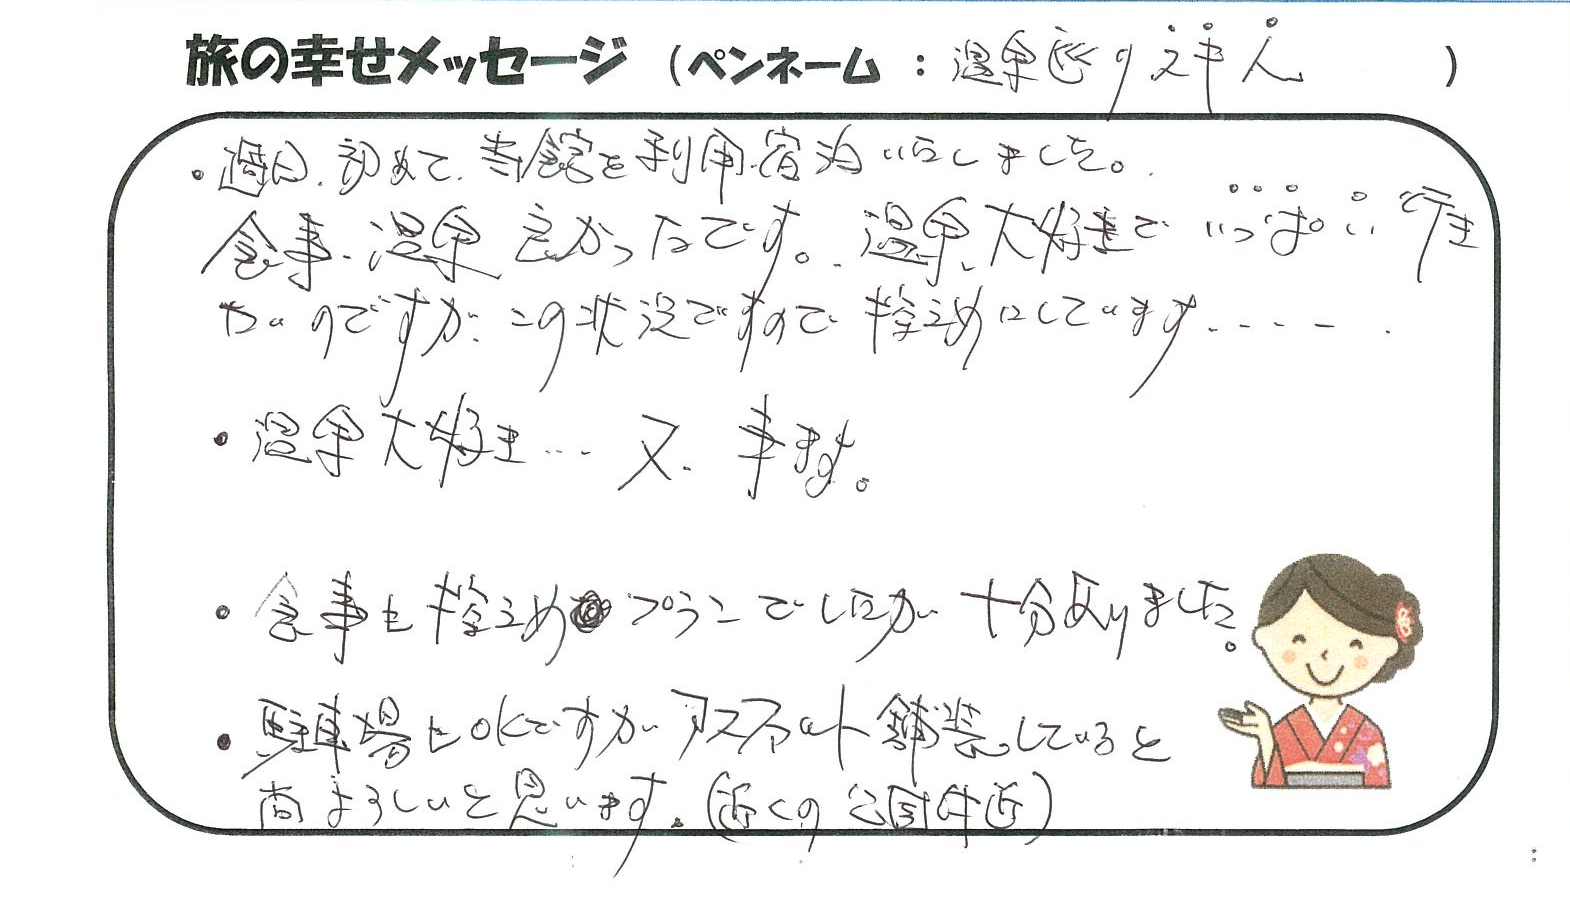 旅の幸せメッセージ (ペンネーム : 温泉 の 人 )
・週日、初めて、貴館を利用、宿泊いたしました。
食事、温泉 良かったです。温泉、大好きで いっぱい 行き
たいのですが、この状況ですので 控えめにしています.....
・温泉大好き… 又、来ます。
・食事も控えめ プランでしたが 十分足りました。
・駐車場もOKですが アスファルト舗装していると
尚よろしいと思います。(近くの公園付近)